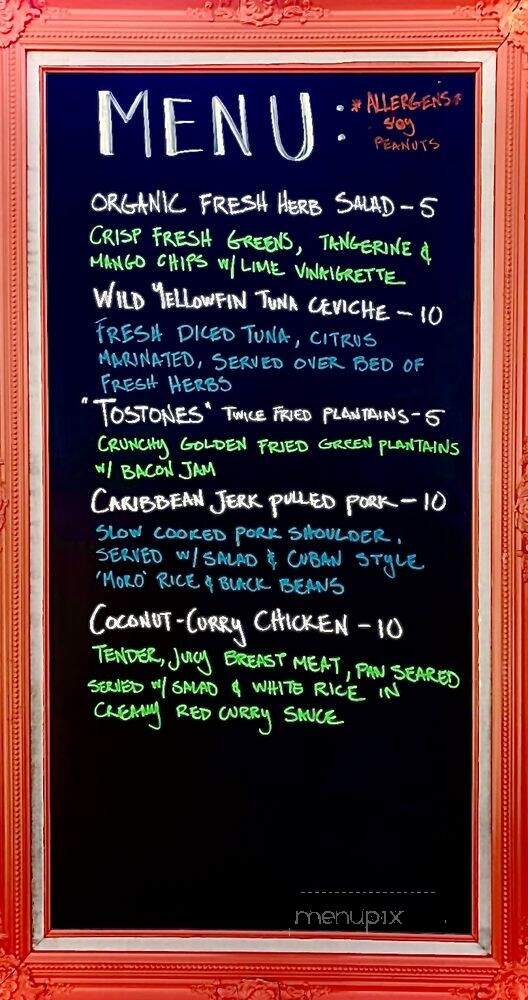 MENU:
*ALLERGENS*
soy
PEANUTS
ORGANIC FRESH HERB SALAD - 5
CRISP FRESH GREENS, TANGERINE &
MANGO CHIPS W/ LIME VINAIGRETTE
WILD YELLOWFIN TUNA CEVICHE - 10
FRESH DICED TUNA, CITRUS
MARINATED, SERVED OVER BED OF
FRESH HERBS
"TOSTONES" TWICE FRIED PLANTAINS - 5
CRUNCHY GOLDEN FRIED GREEN PLANTAINS
W/ BACON JAM
CARIBBEAN JERK PULLED PORK - 10
SLOW COOKED PORK SHOULDER,
SERVED W/ SALAD & CUBAN STYLE
'MORO' RICE & BLACK BEANS
COCONUT-CURRY CHICKEN - 10
TENDER, JUICY BREAST MEAT, PAN SEARED
SERVED W/ SALAD & WHITE RICE IN
CREAMY RED CURRY SAUCE
menupix